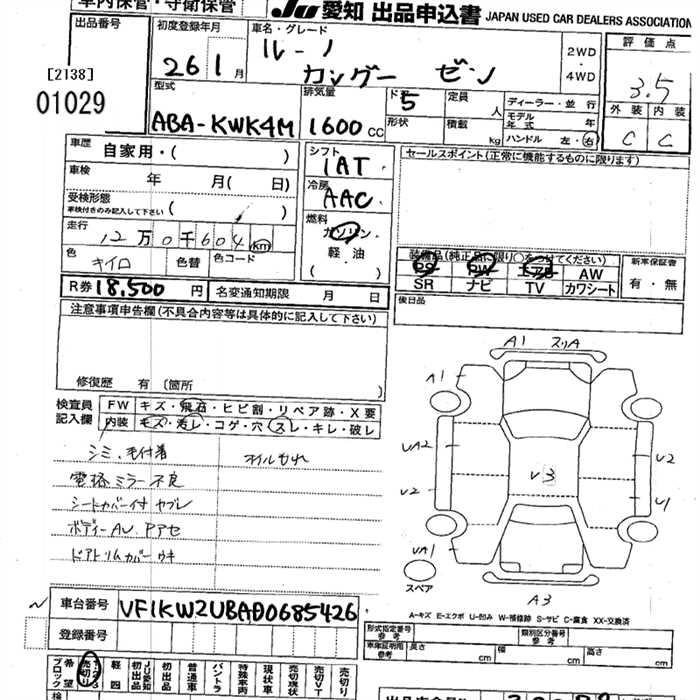 車内保管・守衛保管
JU 愛知 出品申込書 JAPAN USED CAR DEALERS ASSOCIATION
出品店
初度登録年月
26 1月
車名・グレード
ルーノ
カングー ゼン
2WD
・
4WD
評価点
3.5
外装 内装
C C
[2138]
01029
型式
ABA-KWK4M
排気量
1600 CC
ドア 5
形状
定員 人
積載 kg
ディーラー・並行
モデル年式 年
ハンドル 左・右
車歴
自家用・( )
車検
年 月( 日)
受検形態
車検付きのみ記入して下さい ( )
走行
12万0千604km
色
キイロ
色替
色コード
シフト
IAT
冷房
AAC
燃料
ガソリン
・
軽油
( )
セールスポイント(正常に機能するものに限ります)
装備品(純正品に限り○をつけてください)
PS PW エアB AW
SR ナビ TV カワシート
新車保証書
有・無
後日品
R券 18,500円
名変通知期限 月 日
注意事項申告欄(不具合内容等は具体的に記入して下さい)
修復歴 有 〔箇所 〕
検査員
記入欄
FW キズ・飛石・ヒビ割・リペア跡・X要
内装 キズ・汚レ・コゲ・穴・スレ・キレ・破レ
シミ、毛付着
オイルもれ
電格ミラー不良
シートカバー付 ヤブレ
ボディーAU、Pアセ
ドアトリムカバーウキ
A1 スリA
A1
UA2
U2
V3
U2
U1
UA1
スペア
A3
A-キズ E-エクボ U-凹み W-補修跡 S-サビ C-腐食 XX-交換済
車台番号
VF1KW2UBAD0685426
登録番号
形式指定番号
参考
類別区分番号
参考
車庫証明用
参考
長さ cm
幅 cm
高さ cm
ブロック
希望
売切り
123
軽四
初出品
JU愛知
初出品
普通車
バントラ
特殊車両
現状車
売切現状
売切VT
売切り
出品店会員